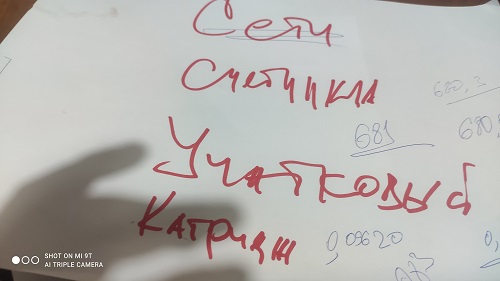 Сети
Счетчики
680,3
681
680,
Участковый
Картридж
0,09620
0,
SHOT ON MI 9T
AI TRIPLE CAMERA